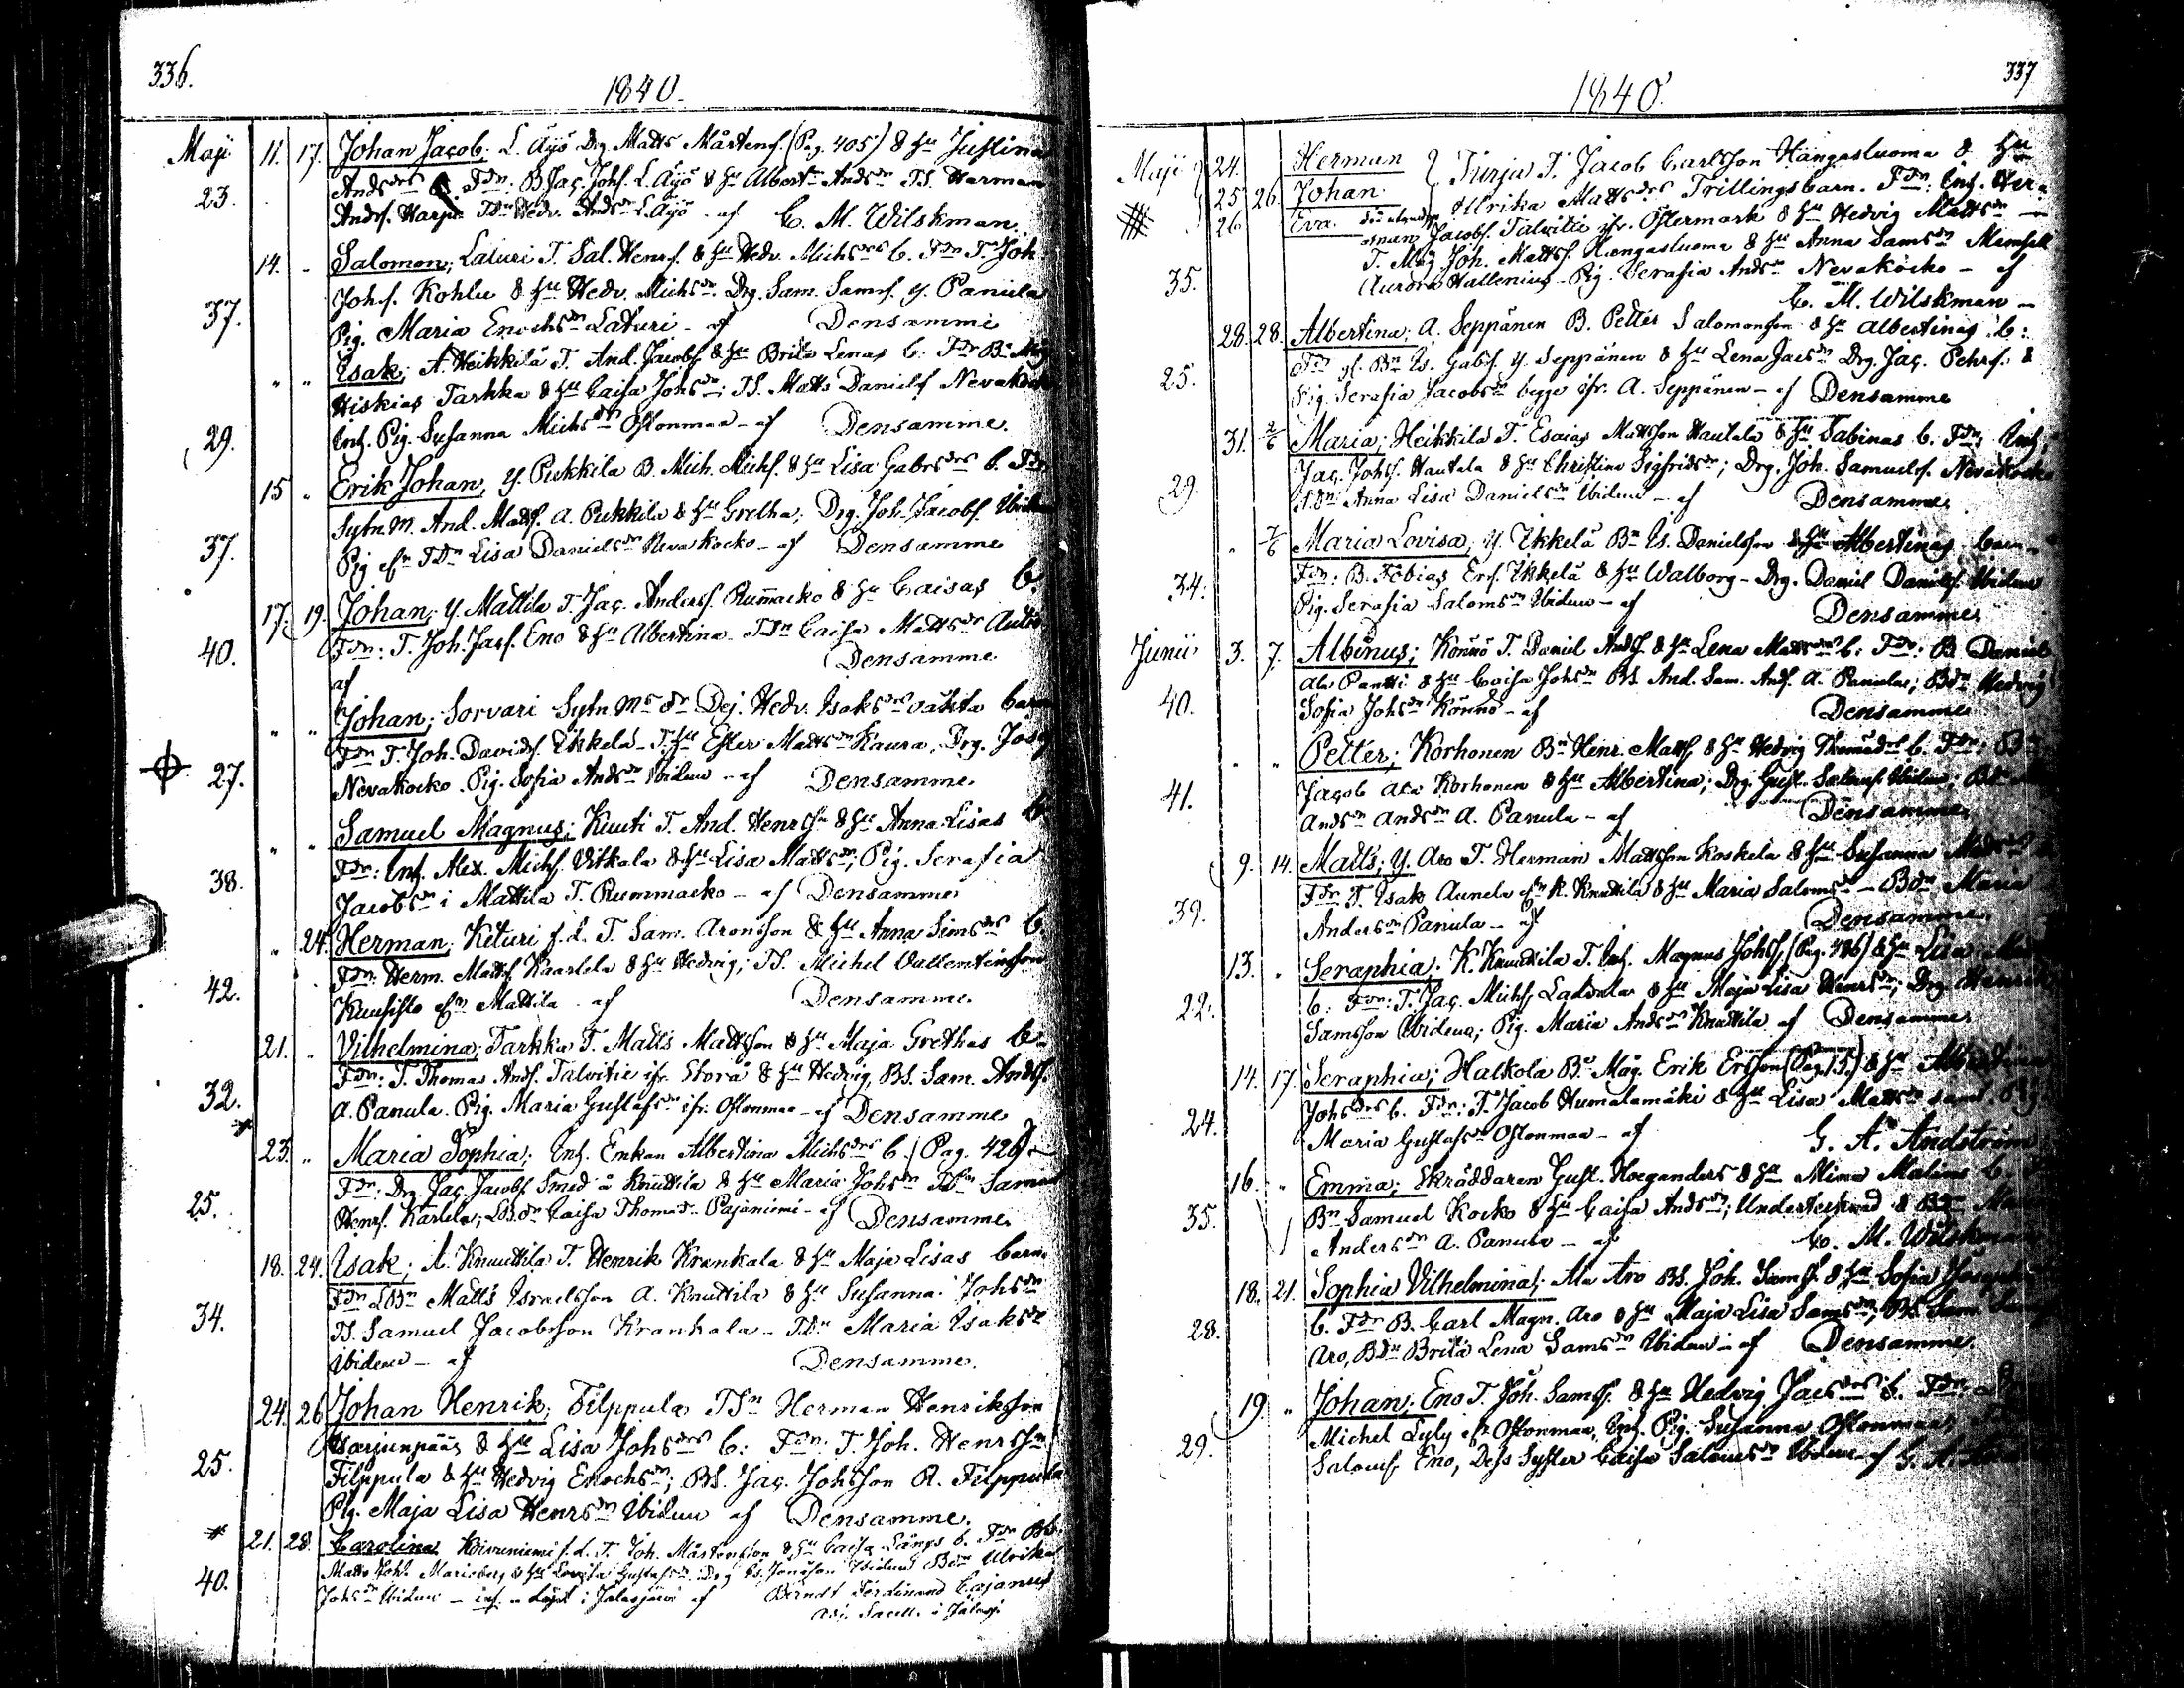 336.
1840.
Maji 11. 17. Johan Jacob; L. Äyö Drg. Matts Mårtens. (Pag. 405) & Hu Justina
23. Andsdrs b. Fdr: B. Jac. Johs. L. Äyö & Hu Albertna Andsdr TS. Herman
Ands. Harju TDr Hedv. Andsdr L. Äyö - af C. M. Wilskman.
14. " Salomon; Laturi T. Sal. Henrs. & Hu Hedv. Michsdrs b. Fdr T. Joh.
37. Johs. Kohlu & Hu Hedv. Michsdr Drg. Sam. Sams. Y. Panula
Pig. Maria Enochsdr Laturi - af Densamme
" " Isak; A. Heikkilä T. And. Jacobs. & Hu Brita Lenas b. Fdr Bn
29. Hiskias Tarkka & Hu Caisa Johsdr; TS. Matts Daniels. Nevakocko
Enk. Pig. Susanna Michsdr Ostonmaa - af Densamme.
15 " Erik Johan; Y. Pukkila B. Mich. Michs. & Hu Lisa Gabrsdrs b. Fdr
37. Sytn. M. And. Matts. A. Pukkila & Hu Gretha; Drg. Joh. Jacobs. Ibidem
Pig. TDr Lisa Danielsdr Nevakocko - af Densamme
17. 19. Johan; Y. Mattila T. Jac. Anders. Rummacko & Hu Caisas b.
40. Fdr: T. Joh. Jacs. Eno & Hu Albertina - TDr Caisa Mattsdr
af Densamme
" " Johan; Sorvari Sytn. Ms Dr Dej. Hedv. Isaksdrs oäkta barn
27. Fdr T. Joh. Davids. Ikkelä - T. Hu Ester Mattsdr Kaura, Drg. Jos.
Nevakocko. Pig. Sofia Andsdr Ibidem - af Densamme.
" " Samuel Magnus; Knuti T. And. Henrsson & Hu Anna Lisas b
38. Fdr: Enk. Alex. Michs. Vitkala & Hu Lisa Mattsdr; Pig. Serafia
Jacobsdr i Mattila T. Rummacko - af Densamme
" 24. Herman; Keturi f.d. T. Sam. Aronsson & Hu Anna Simsdrs b
42. Fdr: Herm. Matts. Kaarlela & Hu Hedvig; TS. Michel Vallentinsson
Kuusisto Mattila - af Densamme.
21. " Vilhelmina; Tarkka T. Matts Mattsson & Hu Maja Grethas b
32. Fdr: T. Thomas Ands. Talvitie ifr. Storå & Hu Hedvig, BS. Sam. Ands.
A. Panula. Pig. Maria Gustafsdr ifr. Ostonmaa - af Densamme
23. " Maria Sophia; Enk. Enkan Albertina Michsdrs b. (Pag. 426)
25. Fdr: Drg. Jac. Jacobs. Smed å Knuttila & Hu Maria Johsdr TSn Samuel
Henrs. Karlela; LBDr Caisa Thomsdr Pajaniemi - af Densamme
18. 24. Isak; A. Knuuttila T. Henrik Krankala & Hu Maja Lisas barn
34. Fdr LBn Matts Israelsson A. Knuttila & Hu Susanna Johsdr
TS. Samuel Jacobsson Krankala - TDr Maria Isaksdr
Ibidem - af Densamme.
24. 26 Johan Henrik; Filppula TSn Herman Henriksson
Harjunpää & Hu Lisa Johsdrs b: Fdr: T. Joh. Henrsson
25. Filppula & Hu Hedvig Enochsdr; BS. Jac. Johsson A. Filppula
Pig. Maja Lisa Henrsdr Ibidem af Densamme.
21. 28. Carolina; Koivuniemi f.d. T. Joh. Mårtensson & Hu Caisa Längs b. Fdr Bb.
40. Matts Joh. Marieberg & Hu Lovisa Gustafsdr; Drg Es. Jonasson Ibidem BDr Ulrika
Johsdr Ibidem - döpt i Jalasjärvi af Berndt Ferdinand Cajanus
adj. Sacell. i Jalasj.
337
1840.
Maji 24. Herman } Turja T. Jacob Carlsson Hangasluoma & Hu
25 26. Johan } Ulrika Mattsdrs Trillingsbarn. Fdr: Enk. Her-
26 Eva. man Jacobs. Talvitie ifr. Östermark & Hu Hedvig Mattsdr -
T. Måg Joh. Mattss. Hangasluoma & Hu Anna Samsdr Mamsell
35. Aurora Hallenius - Pig. Serafia Andsdr Nevakocko - af
C. M. Wilskman -
28. 28. Albertina; A. Seppänen B. Petter Salomonsson & Hu Albertinas b:
25. Fdr Bn Is. Gabs. Y. Seppänen & Hu Lena Jacsdr Drg. Jac. Pehrs. &
Pig. Serafia Jacobsdr begge ifr. A. Seppänen - af Densamme
31. 2/6 Maria; Heikkilä T. Esaias Mattsson Hautala & Hu Sabinas b. Fdr: Enk.
29. Jac. Johs. Hautala & Hu Christina Sigfridsdr; Drg. Joh. Samuels. Nevakocko
TDr Anna Lisa Danielsdr Ibidem - af Densamme
" 7/6 Maria Lovisa; Y. Ikkelä Bn Is. Danielsson & Hu Albertinas barn
34. Fdr: B. Tobias Ers. Ikkelä & Hu Walborg - Drg. Daniel Daniels. Ibidem
Pig. Serafia Salomsdr Ibidem - af Densamme
Junii 3. 7. Albinus; Könnö T. Daniel Ands. & Hu Lena Mattsdrs b. Fdr: B. Daniel
40. Ala Pantti & Hu Caisa Johsdr BS. And. Sam. Ands. A. Panula; BDr Hedvig
Sofia Johsdr Könnö - af Densamme
" " Petter; Korhonen Bn Henr. Matts. & Hu Hedvig Thomsdrs b. Fdr: Bn
41. Jacob Ala Korhonen & Hu Albertina; Drg. Gust. Saloms. Ibidem; BDr
Andsdr A. Panula - af Densamme
9. 14. Matts; Y. Aro T. Herman Mattsson Koskela & Hu Susanna
39. Fdr T. Isak Aunela K. Knuttila & Hu Maria Salomsdr - BDr Maria
Andersdr Panula - af Densamme
13. " Seraphia; K. Knuuttila T. Enk. Magnus Johss. (Pag. 486) & Hu Lisa
22. b: Fdr: T. Jac. Michs. Ladvala & Hu Maja Lisa Henrsdr; Drg. Henrik
Samsson Ibidem; Pig. Maria Andsdr Knuttila af Densamme
14. 17. Seraphia; Halkola Bs Måg. Erik Ersson (Pag. 15.) & Hu Albertina
24. Johsdrs b. Fdr: T. Jacob Humalamäki & Hu Lisa Mattsdr samt Pig.
Maria Gustafsdr Ostonmaa - af G. A. Andström
16. " Emma; Skräddaren Gust. Hoeganders & Hu Mina Malins b.
35. Bn Samuel Kocko & Hu Caisa Andsdr; Undertecknad & BDr
Andersdr A. Panula - af C. M. Wilskman
18. 21. Sophia Vilhelmina; Ala Aro BS. Joh. Samss. & Hu Sofia
28. b. Fdr B. Carl Magn. Aro & Hu Maja Lisa Samsdr; BS. Sam.
Aro, BDr Brita Lena Samsdr Ibidem - af Densamme
19. " Johan; Eno T. Joh. Samss. & Hu Hedvig Jacsdrs b. Fdr
29. Michel Lyly Ostonmaa, Enk. Pig. Susanna Ostonmaa;
Saloms. Eno, Dess Syster Caisa Salomsdr Ibidem - af G. A.